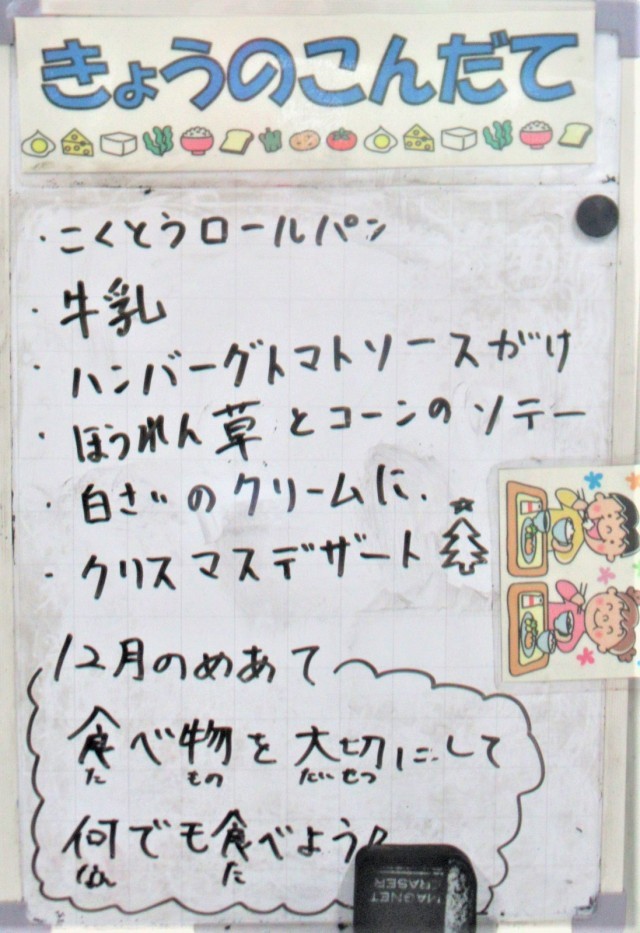 きょうのこんだて
・こくとうロールパン
・牛乳
・ハンバーグトマトソースがけ
・ほうれん草とコーンのソテー
・白ざいのクリームに.
・クリスマスデザート
12月のめあて
食べ物を大切にして
た もの たいせつ
何でも食べよう
なん た
MAGNET
ERASER